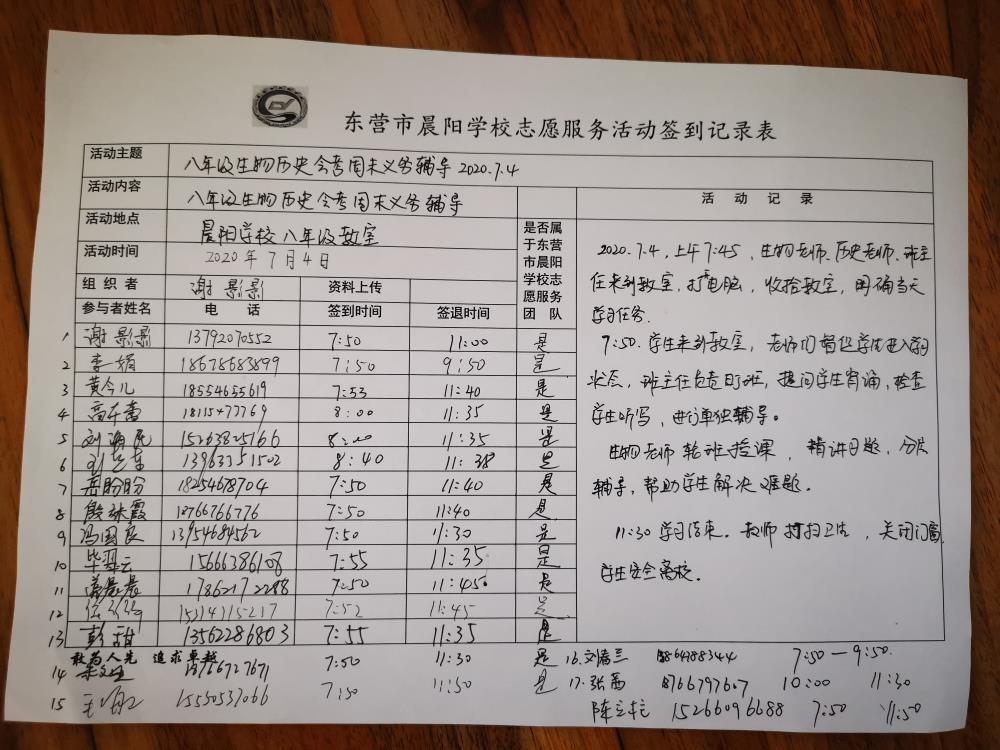 东营市晨阳学校志愿服务活动签到记录表
活动主题 八年级生物历史会考周末义务辅导 2020.7.4
活动内容 八年级生物历史会考周末义务辅导
活动地点 晨阳学校八年级教室
活动时间 2020年7月4日
组织者 谢影影 资料上传
参与者姓名 电话 签到时间 签退时间 是否属于东营市晨阳学校志愿服务团队
1 谢影影 13792070552 7:50 11:00 是
2 李娟 18678683899 7:50 9:50 是
3 黄今儿 18554655619 7:53 11:40 是
4 18115477769 8:00 11:35 是
5 刘海民 15263825166 8:00 11:35 是
6 13963351502 8:40 11:38 是
7 岳盼盼 18254678704 7:50 11:40 是
8 殷妹霞 18766766776 7:50 11:40 是
9 冯国良 13954684562 7:50 11:30 是
10 毕翠云 15666386108 7:55 11:35 是
11 晨晨 17862172288 7:50 11:45 是
12 7:52 11:45 是
13 彭甜 13562286803 7:55 11:35 是
敢为人先 追求卓越
14 18766727671 7:50 11:30 是
15 15550537066 7:50 11:50 是
16.刘春兰 7:50—9:50.
17.张茜 8766797607 10:00 11:30
陈立柱 15266096688 7:50 11:50
活动记录
2020.7.4,上午7:45,生物老师、历史老师、班主
任来到教室,打开电脑,收拾教室,明确当天
学习任务.
7:50.学生来到教室,老师们督促学生进入学习
状态,班主任负责盯班,提问学生背诵,检查
学生听写,进行单独辅导。
生物老师轮班授课,精讲习题,分层
辅导,帮助学生解决难题.
11:30学习结束.教师打扫卫生,关闭门窗
学生安全离校.